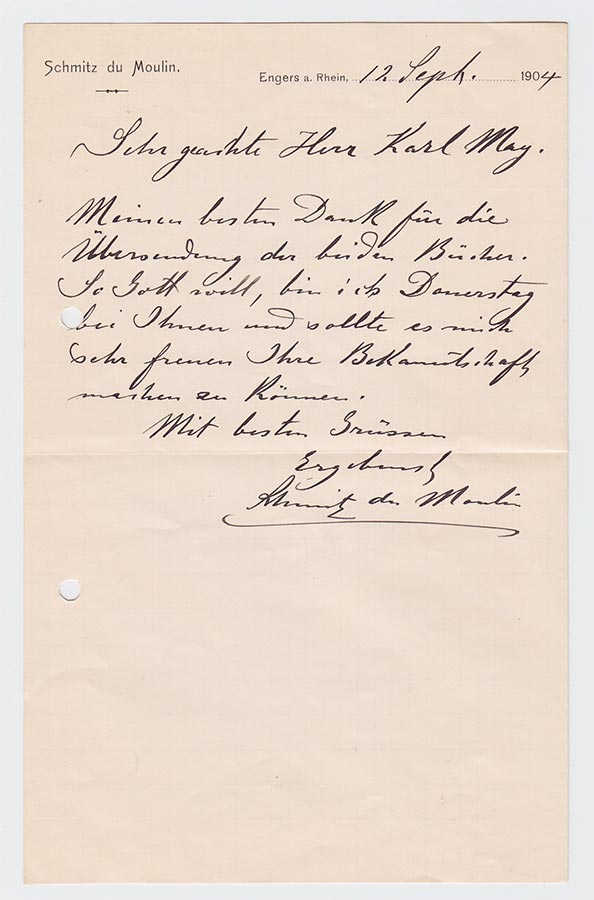 Schmitz du Moulin.
Engers a. Rhein, 12. Sept. 1904
Sehr geachte Herr Karl May.
Meinen besten Dank für die
Übersendung der beiden Bücher.
So Gott will, bin ich Donerstag
bei Ihnen und sollte es mich
sehr freuen Ihre Bekanntschaft
machen zu können.
Mit besten Grüssen
Ergebenst
Schmitz du Moulin